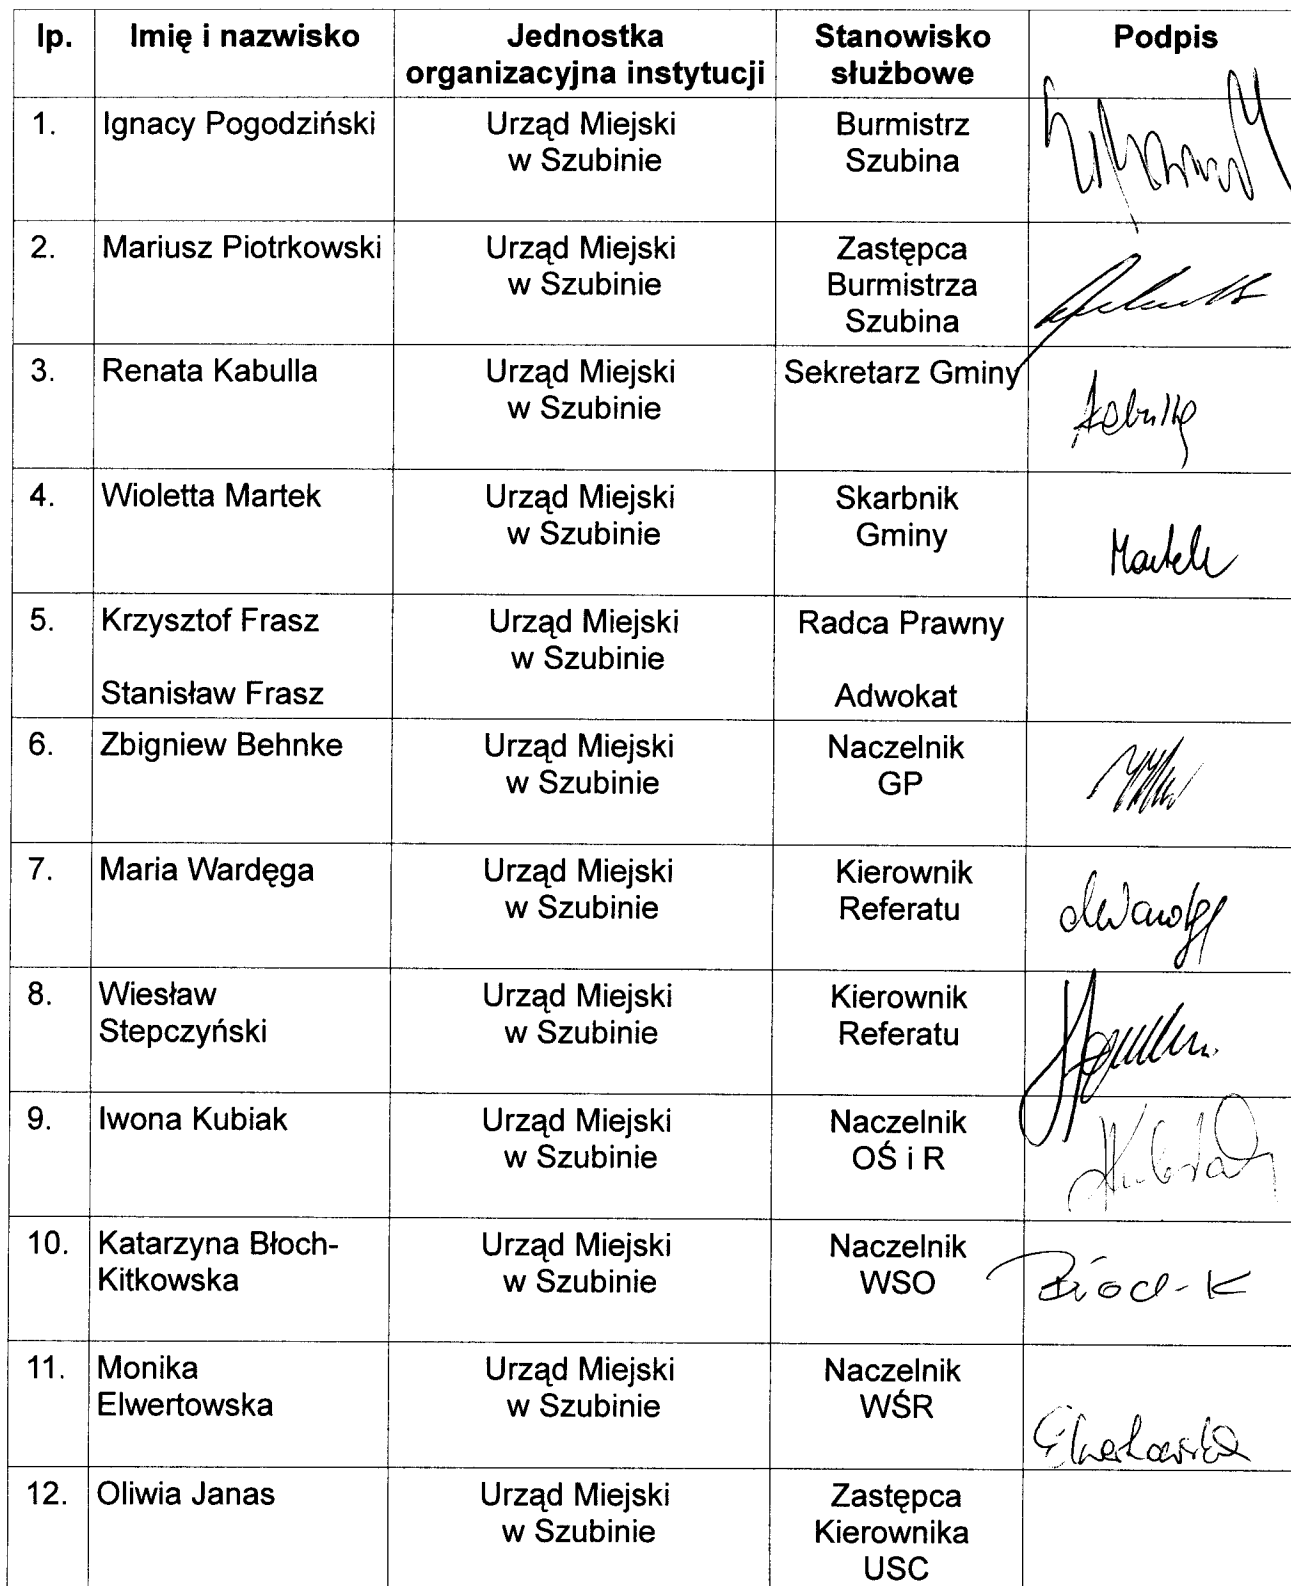 lp. Imię i nazwisko Jednostka organizacyjna instytucji Stanowisko służbowe Podpis
1. Ignacy Pogodziński Urząd Miejski w Szubinie Burmistrz Szubina
2. Mariusz Piotrkowski Urząd Miejski w Szubinie Zastępca Burmistrza Szubina
3. Renata Kabulla Urząd Miejski w Szubinie Sekretarz Gminy
4. Wioletta Martek Urząd Miejski w Szubinie Skarbnik Gminy Martek
5. Krzysztof Frasz Urząd Miejski w Szubinie Radca Prawny
Stanisław Frasz Adwokat
6. Zbigniew Behnke Urząd Miejski w Szubinie Naczelnik GP
7. Maria Wardęga Urząd Miejski w Szubinie Kierownik Referatu
8. Wiesław Stepczyński Urząd Miejski w Szubinie Kierownik Referatu
9. Iwona Kubiak Urząd Miejski w Szubinie Naczelnik OŚ i R
10. Katarzyna Błoch-Kitkowska Urząd Miejski w Szubinie Naczelnik WSO
11. Monika Elwertowska Urząd Miejski w Szubinie Naczelnik WŚR
12. Oliwia Janas Urząd Miejski w Szubinie Zastępca Kierownika USC